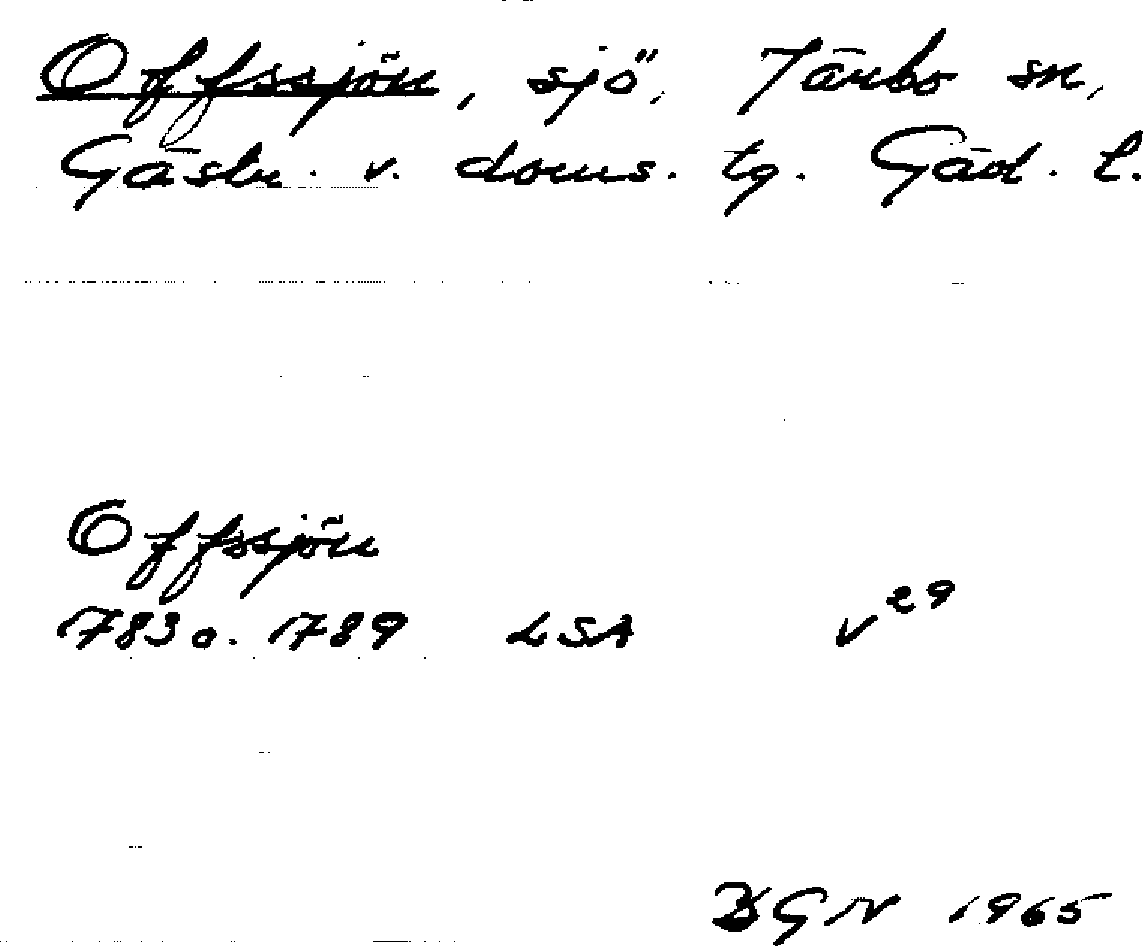 Offssjön, sjö, Järbo sn,
Gästr. v. doms. tg. Gävl. l.
Offssjön
1783 o. 1789 LSA V 29
BGN 1965